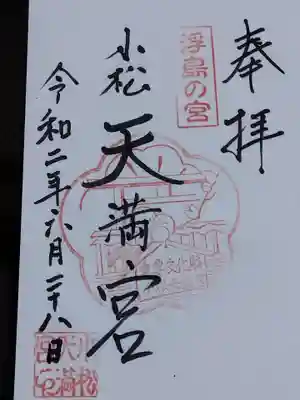 奉拝
浮島の宮
小松天満宮
令和二年六月二十八日